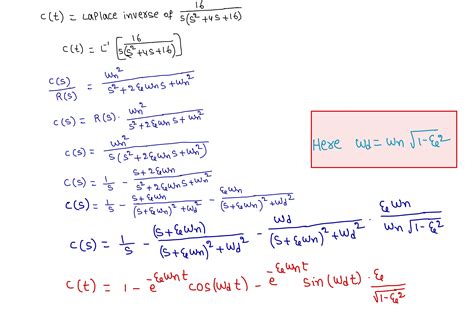 c(t) = Laplace inverse of 16/(s(s²+4s+16))
c(t) = L⁻¹[16/(s(s²+4s+16))]
C(s)/R(s) = ωn²/(s²+2ξωns+ωn²)
C(s) = R(s)·ωn²/(s²+2ξωns+ωn²)
C(s) = ωn²/(s(s²+2ξωns+ωn²))
C(s) = 1/s − (s+2ξωn)/(s²+2ξωns+ωn²)
C(s) = 1/s − (s+ξωn)/((s+ξωn)²+ωd²) − ξωn/((s+ξωn)²+ωd²)
Here ωd = ωn√(1-ξ²)
C(s) = 1/s − (s+ξωn)/((s+ξωn)²+ωd²) − ωd/((s+ξωn)²+ωd²) · ξωn/(ωn√(1-ξ²))
c(t) = 1 − e^(-ξωnt) cos(ωdt) − e^(-ξωnt) sin(ωdt) · ξ/√(1-ξ²)